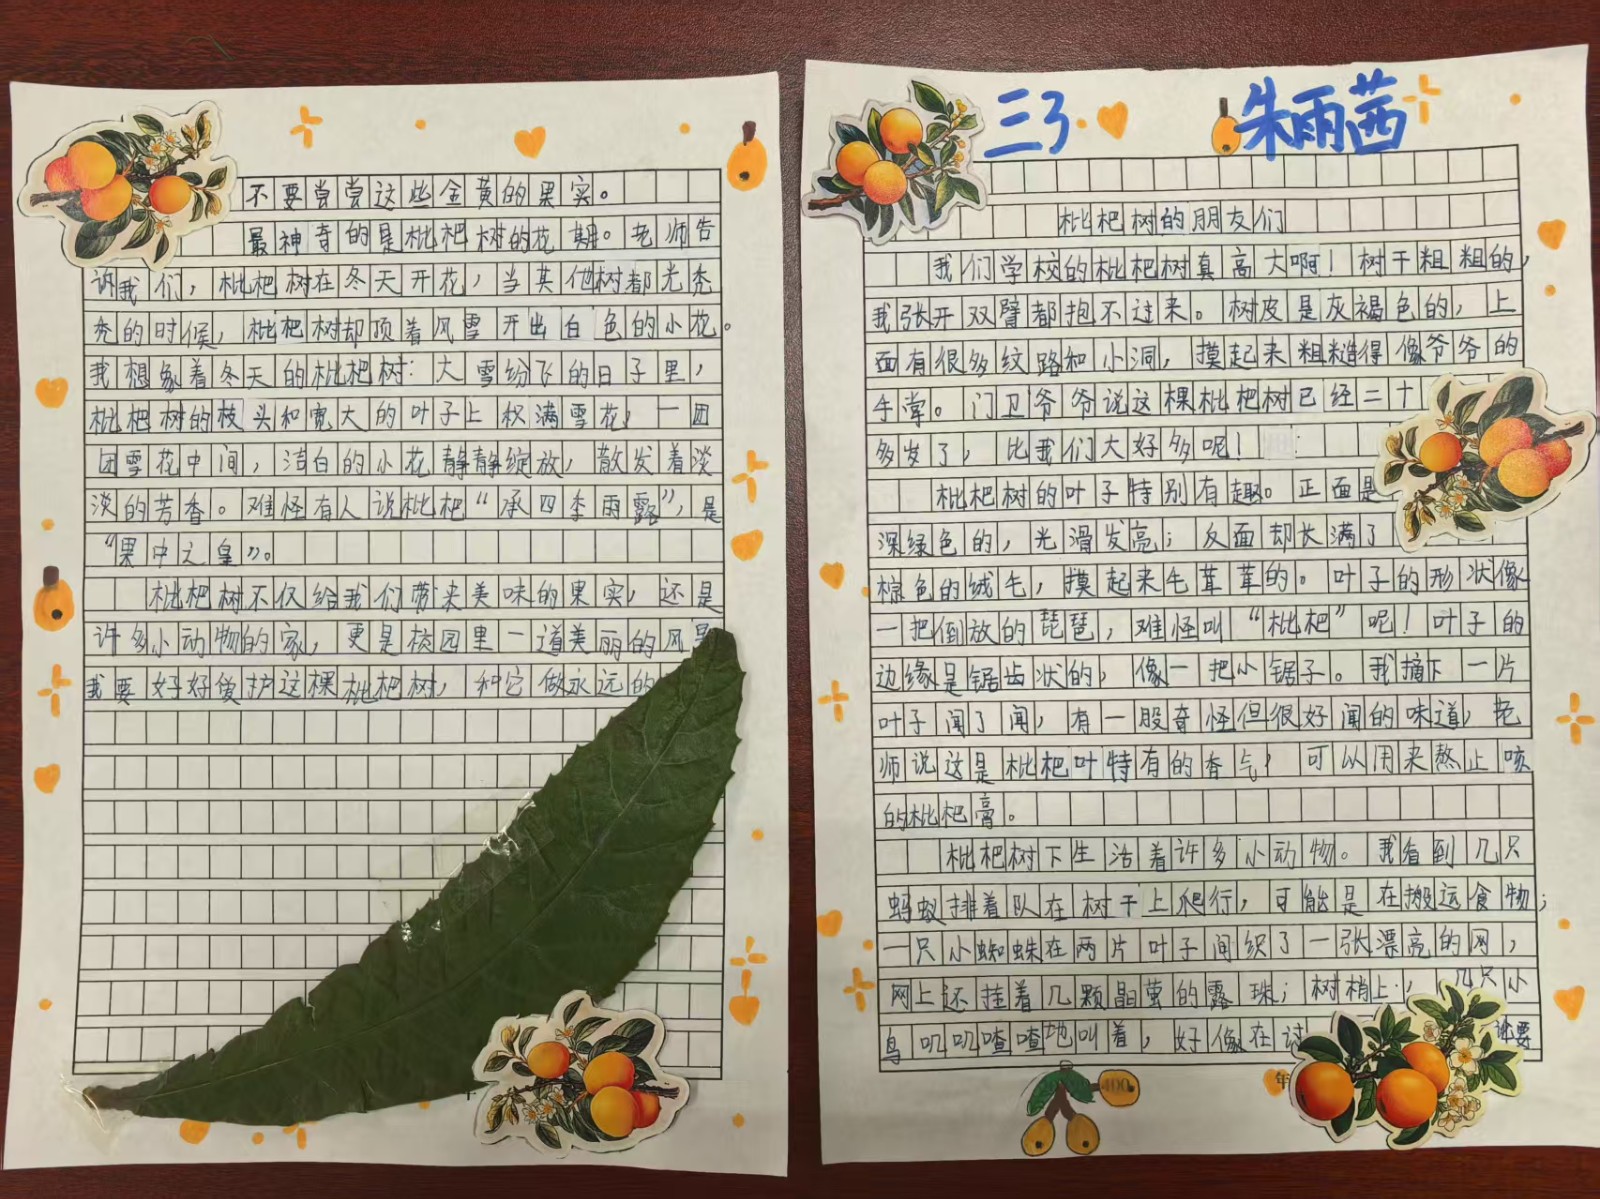 三3 朱雨茜
枇杷树的朋友们
我们学校的枇杷树真高大啊！树干粗粗的，
我张开双臂都抱不过来。树皮是灰褐色的，上
面有很多纹路和小洞，摸起来粗糙得像爷爷的
手掌。门卫爷爷说这棵枇杷树已经二十
多岁了，比我们大好多呢！
枇杷树的叶子特别有趣。正面是
深绿色的，光滑发亮；反面却长满了
棕色的绒毛，摸起来毛茸茸的。叶子的形状像
一把倒放的琵琶，难怪叫“枇杷”呢！叶子的
边缘是锯齿状的，像一把小锯子。我摘下一片
叶子闻了闻，有一股奇怪但很好闻的味道，老
师说这是枇杷叶特有的香气，可以用来熬止咳
的枇杷膏。
枇杷树下生活着许多小动物。我看到几只
蚂蚁排着队在树干上爬行，可能是在搬运食物；
一只小蜘蛛在两片叶子间织了一张漂亮的网，
网上还挂着几颗晶莹的露珠；树梢上，几只小
鸟叽叽喳喳地叫着，好像在讨论要
400
年
不要尝尝这些金黄的果实。
最神奇的是枇杷树的花期。老师告
诉我们，枇杷树在冬天开花，当其他树都光秃
秃的时候，枇杷树却顶着风雪开出白色的小花。
我想象着冬天的枇杷树：大雪纷飞的日子里，
枇杷树的枝头和宽大的叶子上积满雪花，一团
团雪花中间，洁白的小花静静绽放，散发着淡
淡的芳香。难怪有人说枇杷“承四季雨露”，是
“果中之皇”。
枇杷树不仅给我们带来美味的果实，还是
许多小动物的家，更是校园里一道美丽的风景
我要好好爱护这棵枇杷树，和它做永远的